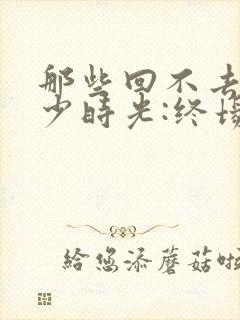 那些回不去
少時光:终場
给您添蘑菇啦